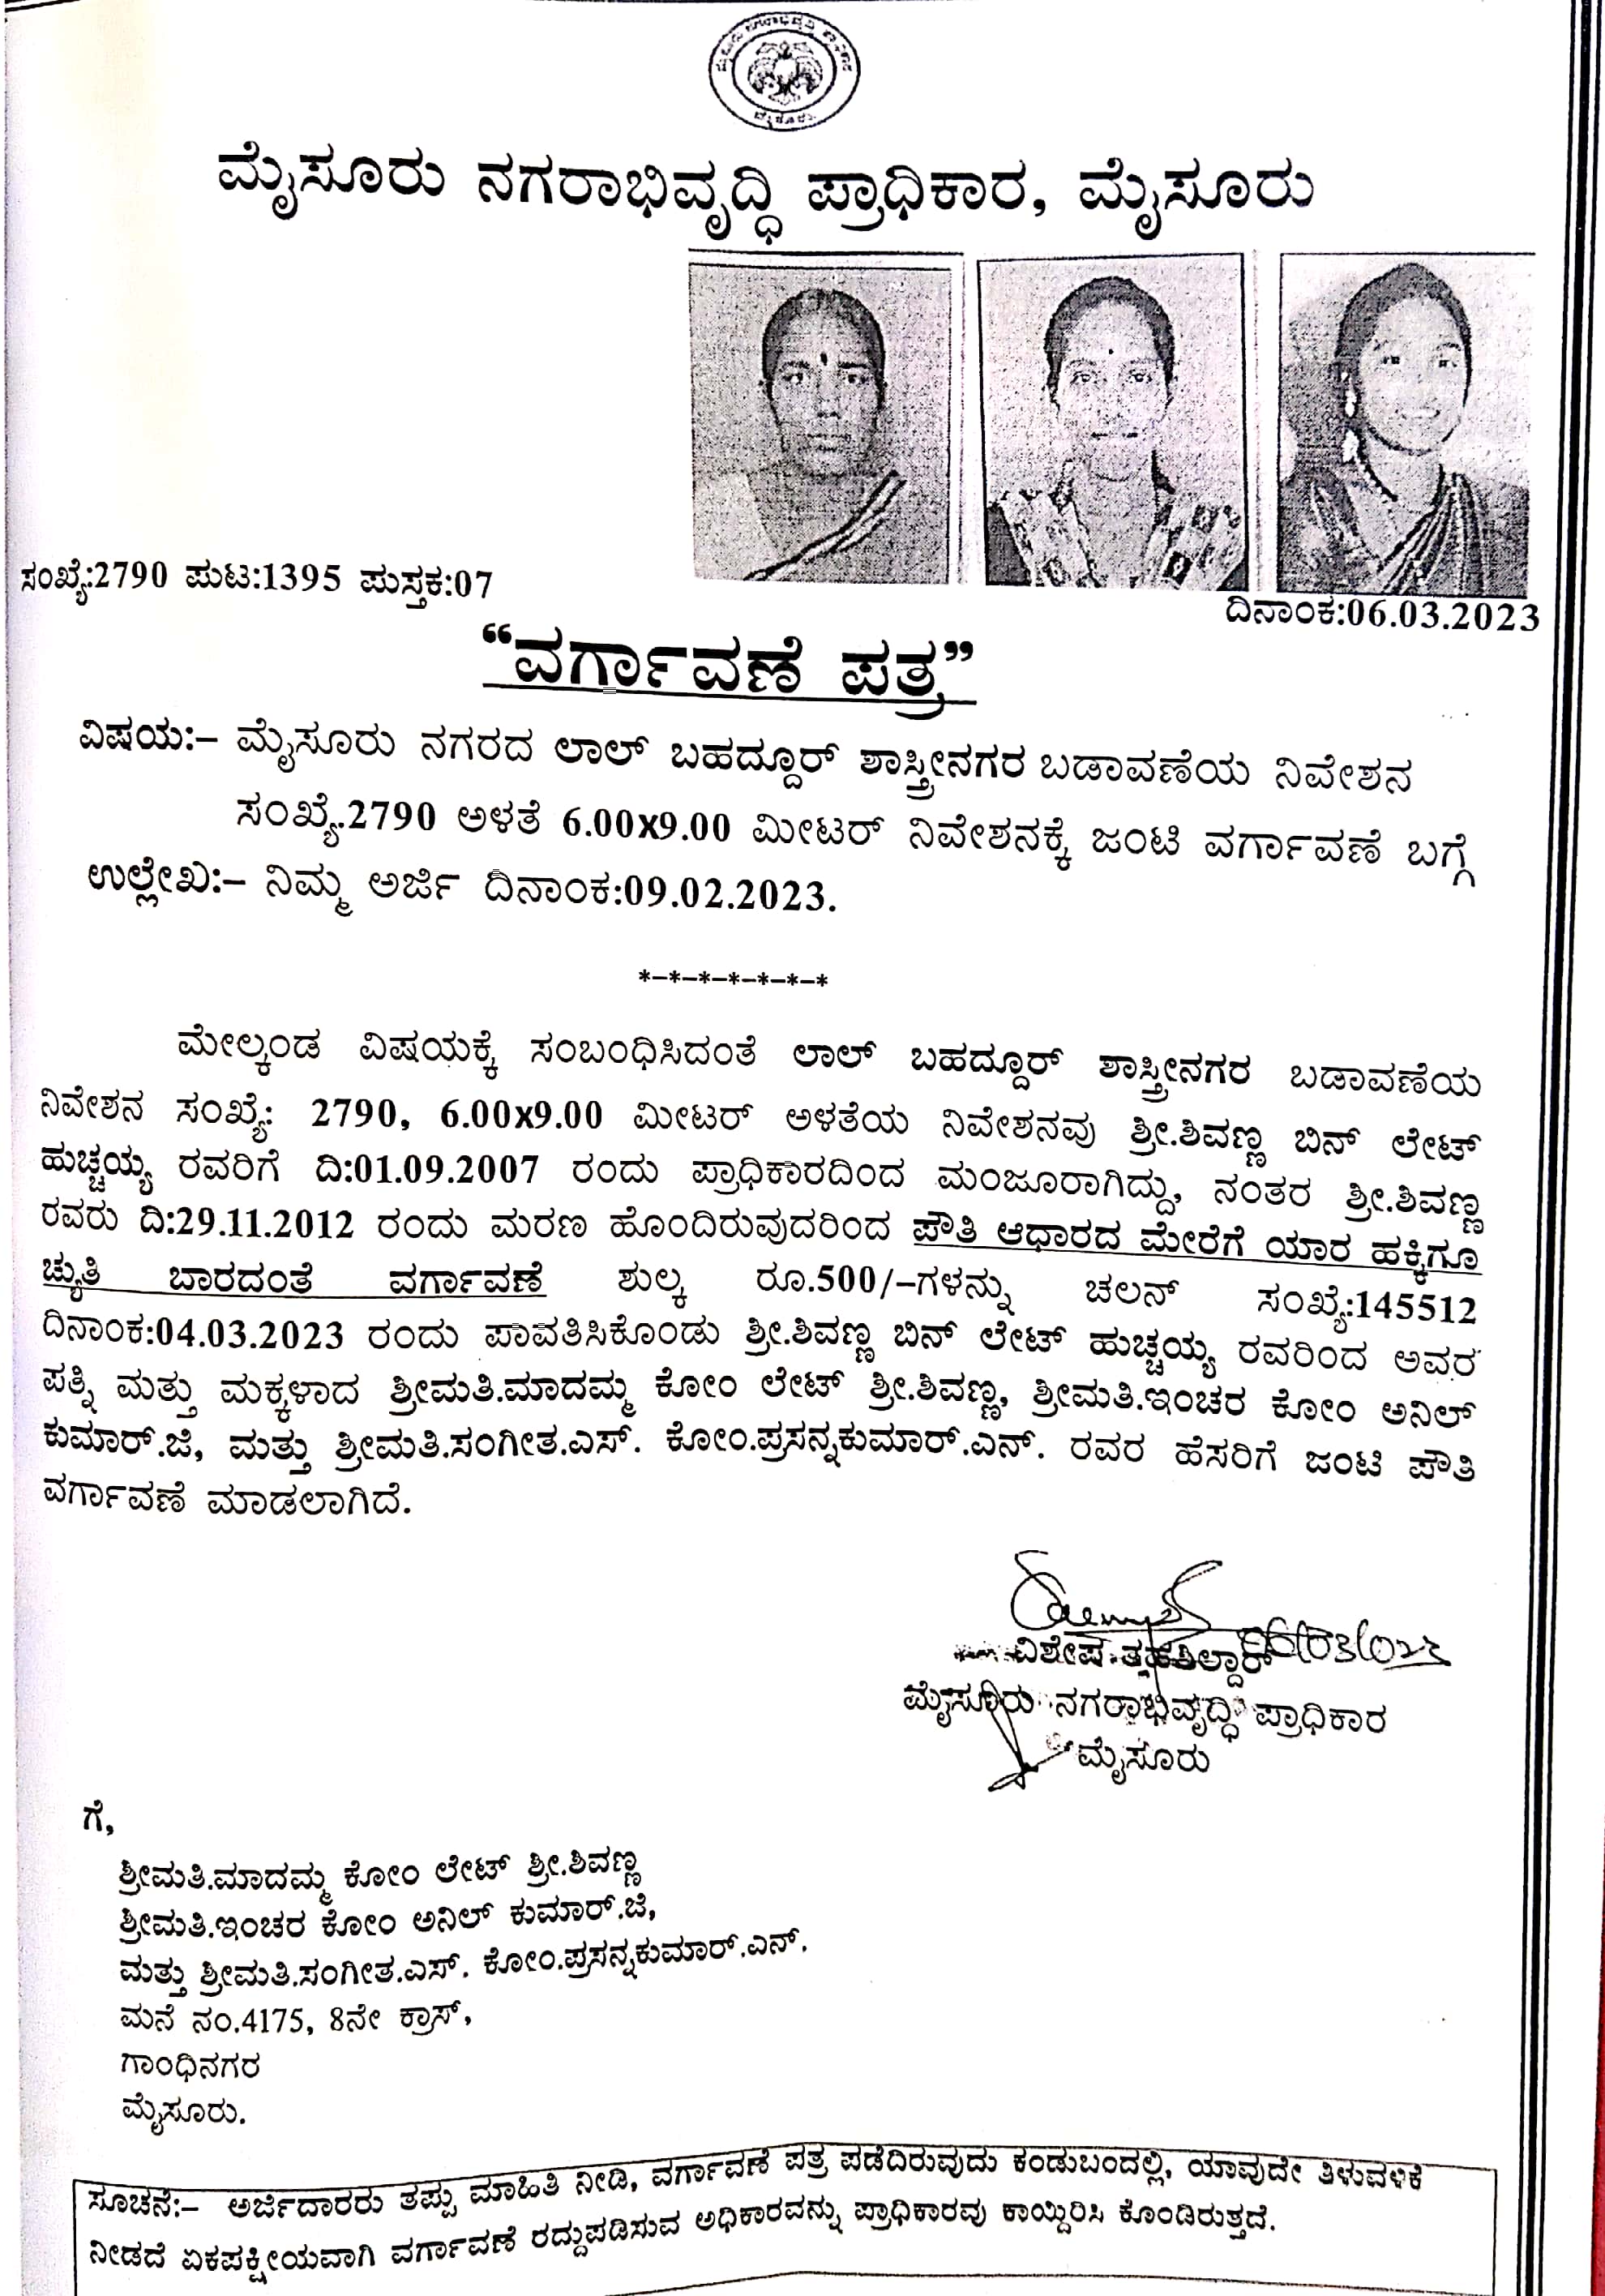 ಮೈಸೂರು ನಗರಾಭಿವೃದ್ಧಿ ಪ್ರಾಧಿಕಾರ, ಮೈಸೂರು
ಸಂಖ್ಯೆ:2790 ಪುಟ:1395 ಪುಸ್ತಕ:07
ದಿನಾಂಕ:06.03.2023
“ವರ್ಗಾವಣೆ ಪತ್ರ”
ವಿಷಯ:– ಮೈಸೂರು ನಗರದ ಲಾಲ್ ಬಹದ್ದೂರ್ ಶಾಸ್ತ್ರೀನಗರ ಬಡಾವಣೆಯ ನಿವೇಶನ
ಸಂಖ್ಯೆ.2790 ಅಳತೆ 6.00x9.00 ಮೀಟರ್ ನಿವೇಶನಕ್ಕೆ ಜಂಟಿ ವರ್ಗಾವಣೆ ಬಗ್ಗೆ
ಉಲ್ಲೇಖ:– ನಿಮ್ಮ ಅರ್ಜಿ ದಿನಾಂಕ:09.02.2023.
*–*–*–*–*–*–*
ಮೇಲ್ಕಂಡ ವಿಷಯಕ್ಕೆ ಸಂಬಂಧಿಸಿದಂತೆ ಲಾಲ್ ಬಹದ್ದೂರ್ ಶಾಸ್ತ್ರೀನಗರ ಬಡಾವಣೆಯ
ನಿವೇಶನ ಸಂಖ್ಯೆ: 2790, 6.00x9.00 ಮೀಟರ್ ಅಳತೆಯ ನಿವೇಶನವು ಶ್ರೀ.ಶಿವಣ್ಣ ಬಿನ್ ಲೇಟ್
ಹುಚ್ಚಯ್ಯ ರವರಿಗೆ ದಿ:01.09.2007 ರಂದು ಪ್ರಾಧಿಕಾರದಿಂದ ಮಂಜೂರಾಗಿದ್ದು, ನಂತರ ಶ್ರೀ.ಶಿವಣ್ಣ
ರವರು ದಿ:29.11.2012 ರಂದು ಮರಣ ಹೊಂದಿರುವುದರಿಂದ ಪೌತಿ ಆಧಾರದ ಮೇರೆಗೆ ಯಾರ ಹಕ್ಕಿಗೂ
ಚ್ಯುತಿ ಬಾರದಂತೆ ವರ್ಗಾವಣೆ ಶುಲ್ಕ ರೂ.500/–ಗಳನ್ನು ಚಲನ್ ಸಂಖ್ಯೆ:145512
ದಿನಾಂಕ:04.03.2023 ರಂದು ಪಾವತಿಸಿಕೊಂಡು ಶ್ರೀ.ಶಿವಣ್ಣ ಬಿನ್ ಲೇಟ್ ಹುಚ್ಚಯ್ಯ ರವರಿಂದ ಅವರ
ಪತ್ನಿ ಮತ್ತು ಮಕ್ಕಳಾದ ಶ್ರೀಮತಿ.ಮಾದಮ್ಮ ಕೋಂ ಲೇಟ್ ಶ್ರೀ.ಶಿವಣ್ಣ, ಶ್ರೀಮತಿ.ಇಂಚರ ಕೋಂ ಅನಿಲ್
ಕುಮಾರ್.ಜೆ, ಮತ್ತು ಶ್ರೀಮತಿ.ಸಂಗೀತ.ಎಸ್. ಕೋಂ.ಪ್ರಸನ್ನಕುಮಾರ್.ಎನ್. ರವರ ಹೆಸರಿಗೆ ಜಂಟಿ ಪೌತಿ
ವರ್ಗಾವಣೆ ಮಾಡಲಾಗಿದೆ.
ವಿಶೇಷ ತಹಶಿಲ್ದಾರ್
ಮೈಸೂರು ನಗರಾಭಿವೃದ್ಧಿ ಪ್ರಾಧಿಕಾರ
ಮೈಸೂರು
ಗೆ,
ಶ್ರೀಮತಿ.ಮಾದಮ್ಮ ಕೋಂ ಲೇಟ್ ಶ್ರೀ.ಶಿವಣ್ಣ
ಶ್ರೀಮತಿ.ಇಂಚರ ಕೋಂ ಅನಿಲ್ ಕುಮಾರ್.ಜೆ,
ಮತ್ತು ಶ್ರೀಮತಿ.ಸಂಗೀತ.ಎಸ್. ಕೋಂ.ಪ್ರಸನ್ನಕುಮಾರ್.ಎನ್.
ಮನೆ ನಂ.4175, 8ನೇ ಕ್ರಾಸ್,
ಗಾಂಧಿನಗರ
ಮೈಸೂರು.
ಸೂಚನೆ:– ಅರ್ಜಿದಾರರು ತಪ್ಪು ಮಾಹಿತಿ ನೀಡಿ, ವರ್ಗಾವಣೆ ಪತ್ರ ಪಡೆದಿರುವುದು ಕಂಡುಬಂದಲ್ಲಿ, ಯಾವುದೇ ತಿಳುವಳಿಕೆ
ನೀಡದೆ ಏಕಪಕ್ಷೀಯವಾಗಿ ವರ್ಗಾವಣೆ ರದ್ದುಪಡಿಸುವ ಅಧಿಕಾರವನ್ನು ಪ್ರಾಧಿಕಾರವು ಕಾಯ್ದಿರಿಸಿ ಕೊಂಡಿರುತ್ತದೆ.